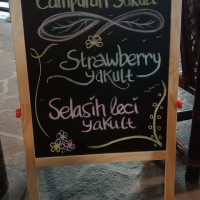 Campuran Yakult
Strawberry
yakult
Selasih leci
yakult